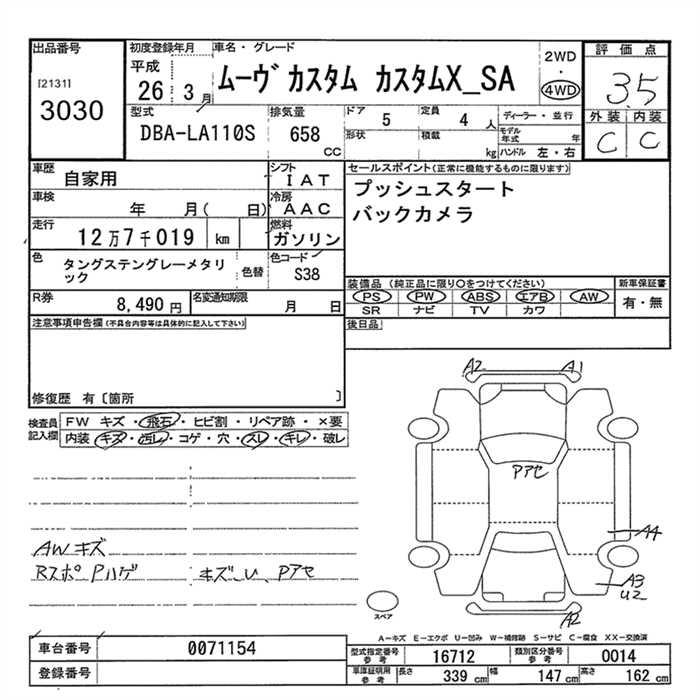 出品番号
[2131]
3030
初度登録年月
平成
26 3月
車名・グレード
ムーヴ カスタム カスタムX_SA
2WD
・
4WD
評価点
3.5
外装 内装
C C
型式
DBA-LA110S
排気量
658
CC
ドア 5
定員 4 人
形状
積載 kg
ディーラー・並行
モデル年式 年
ハンドル 左・右
車歴 自家用
シフト IAT
車検 年 月( 日)
冷房 AAC
走行 12万7千019 km
燃料 ガソリン
色 タングステングレーメタリック
色替
色コード S38
R券 8,490円
名変通知期限 月 日
セールスポイント(正常に機能するものに限ります)
プッシュスタート
バックカメラ
装備品 (純正品に限り○をつけてください)
PS PW ABS エアB AW
SR ナビ TV カワ
新車保証書
有・無
後日品
注意事項申告欄 (不具合内容等は具体的に記入して下さい)
修復歴 有〔箇所 〕
検査員記入欄
FW キズ・飛石・ヒビ割・リペア跡・×要
内装・キズ・汚レ・コゲ・穴・スレ・キレ・破レ
AWキズ
Rスポ Pハゲ キズ・U、Pアセ
A2 A1
Pアセ
A4
A3
U2
A2
スペア
A-キズ E-エクボ U-凹み W-補修跡 S-サビ C-腐食 XX-交換済
車台番号 0071154
登録番号
型式指定番号 参考 16712
類別区分番号 参考 0014
車庫証明用 参考 長さ 339 cm 幅 147 cm 高さ 162 cm